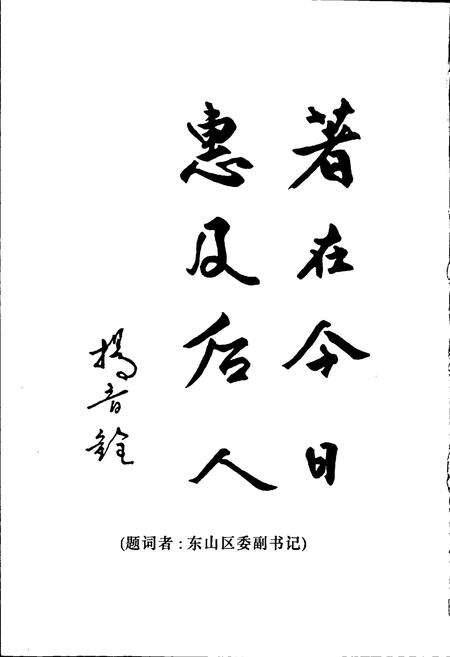 著在今日
惠及后人
杨音铨
(题词者：东山区委副书记)